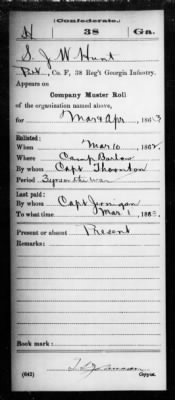 (Confederate.)
H 38 Ga.
S. J. W. Hunt
Pvt., Co. F, 38 Reg't Georgia Infantry.
Appears on
Company Muster Roll
of the organization named above,
for Mar & Apr, 1863
Enlisted:
When Mar 10, 1862.
Where Camp Barlow
By whom Capt Thornton
Period 3 yrs or the war
Last paid:
By whom Capt Jernigan
To what time Mar 1, 1863.
Present or absent Present
Remarks:
Book mark:
(642) Copyist.